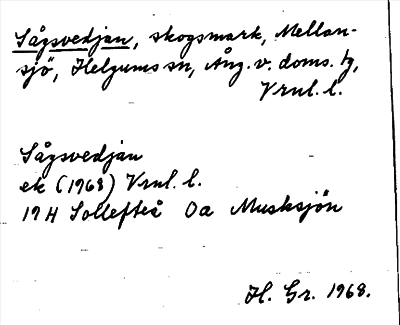 Sågsvedjan, skogsmark, Mellan-
sjö, Helgums sn, Ång. v. doms. tg,
Vrnl. l.
Sågsvedjan
ek (1968) Vrnl. l.
19H Sollefteå 0a Musksjön
H. Gr. 1968.